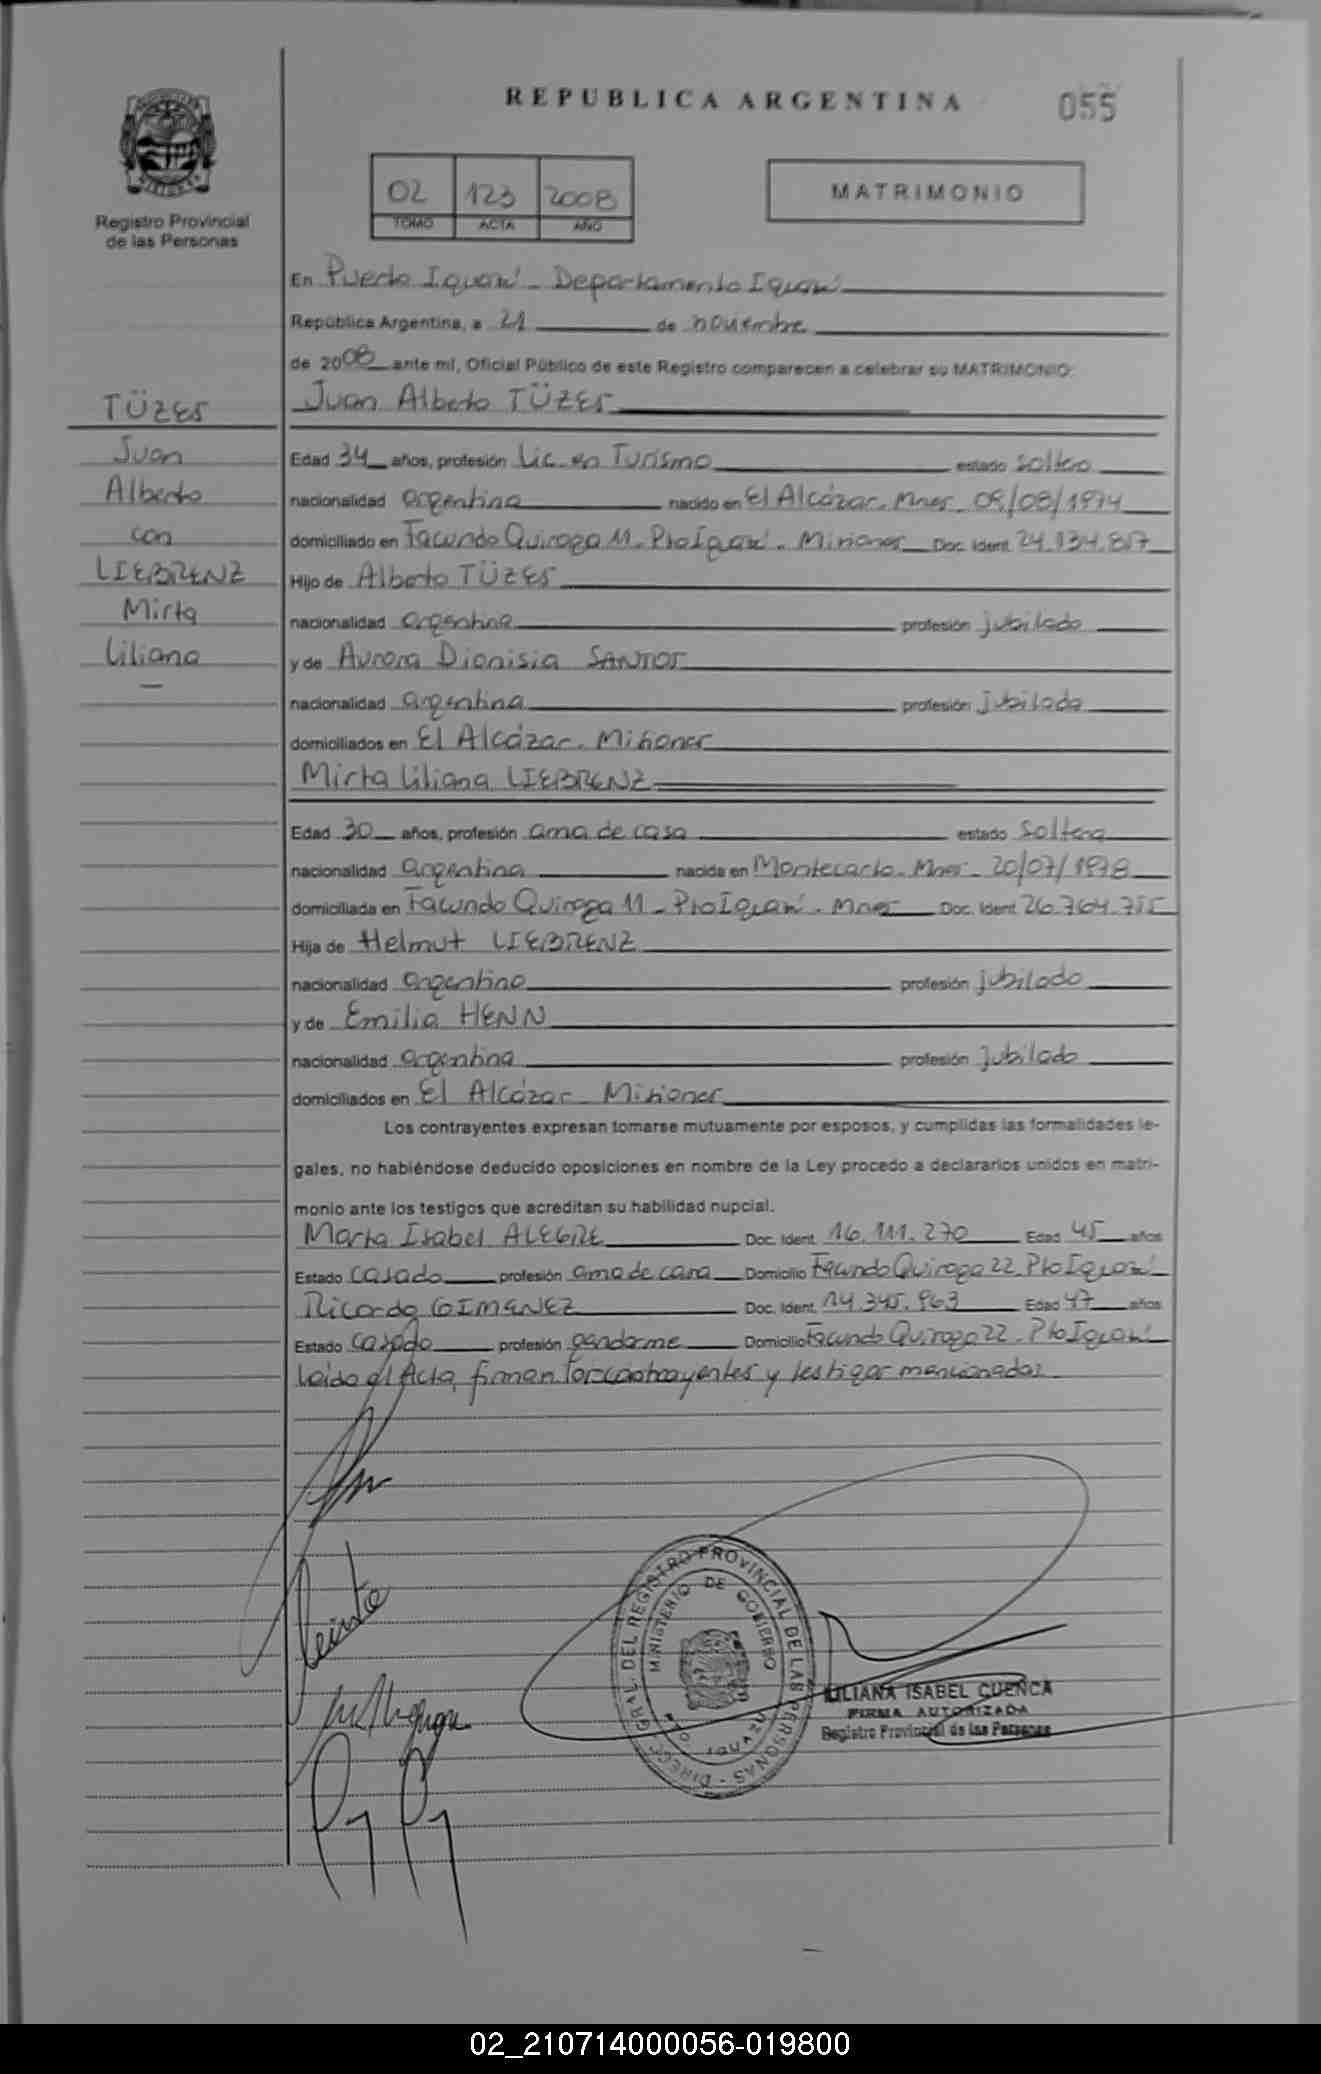 REPUBLICA ARGENTINA
055
Registro Provincial
de las Personas
02 123 2008
TOMO ACTA AÑO
MATRIMONIO
TÜZES
Juan
Alberto
con
LIEBRENZ
Mirta
Liliana
En Puerto Iguazú - Departamento Iguazú
República Argentina, a 21 de noviembre
de 2008 ante mí, Oficial Público de este Registro comparecen a celebrar su MATRIMONIO:
Juan Alberto TÜZES
Edad 34 años, profesión Lic. en Turismo estado soltero
nacionalidad argentina nacido en El Alcázar - Mnes - 09/08/1974
domiciliado en Facundo Quiroga 11 - Pto Iguazú - Misiones Doc. Ident. 24.134.817
Hijo de Alberto TÜZES
nacionalidad argentina profesión jubilado
y de Aurora Dionisia SANTOS
nacionalidad argentina profesión jubilada
domiciliados en El Alcázar - Misiones
Mirta Liliana LIEBRENZ
Edad 30 años, profesión ama de casa estado soltera
nacionalidad argentina nacida en Montecarlo - Mnes - 20/07/1978
domiciliada en Facundo Quiroga 11 - Pto Iguazú - Mnes Doc. Ident. 26.764.755
Hija de Helmut LIEBRENZ
nacionalidad argentina profesión jubilado
y de Emilia HENN
nacionalidad argentina profesión jubilado
domiciliados en El Alcázar - Misiones
Los contrayentes expresan tomarse mutuamente por esposos, y cumplidas las formalidades le-
gales, no habiéndose deducido oposiciones en nombre de la Ley procedo a declararlos unidos en matri-
monio ante los testigos que acreditan su habilidad nupcial.
Marta Isabel ALEGRE Doc. Ident. 16.111.270 Edad 45 años
Estado casada profesión ama de casa Domicilio Facundo Quiroga 22 - Pto Iguazú
Ricardo GIMENEZ Doc. Ident. 14.345.963 Edad 47 años
Estado casado profesión gendarme Domicilio Facundo Quiroga 22 - Pto Iguazú
Leído el Acta, firman los contrayentes y testigos mencionados
DIRECC. GRAL. DEL REGISTRO PROVINCIAL DE LAS PERSONAS
MINISTERIO DE GOBIERNO
LILIANA ISABEL CUENCA
FIRMA AUTORIZADA
Registro Provincial de las Personas
02_210714000056-019800